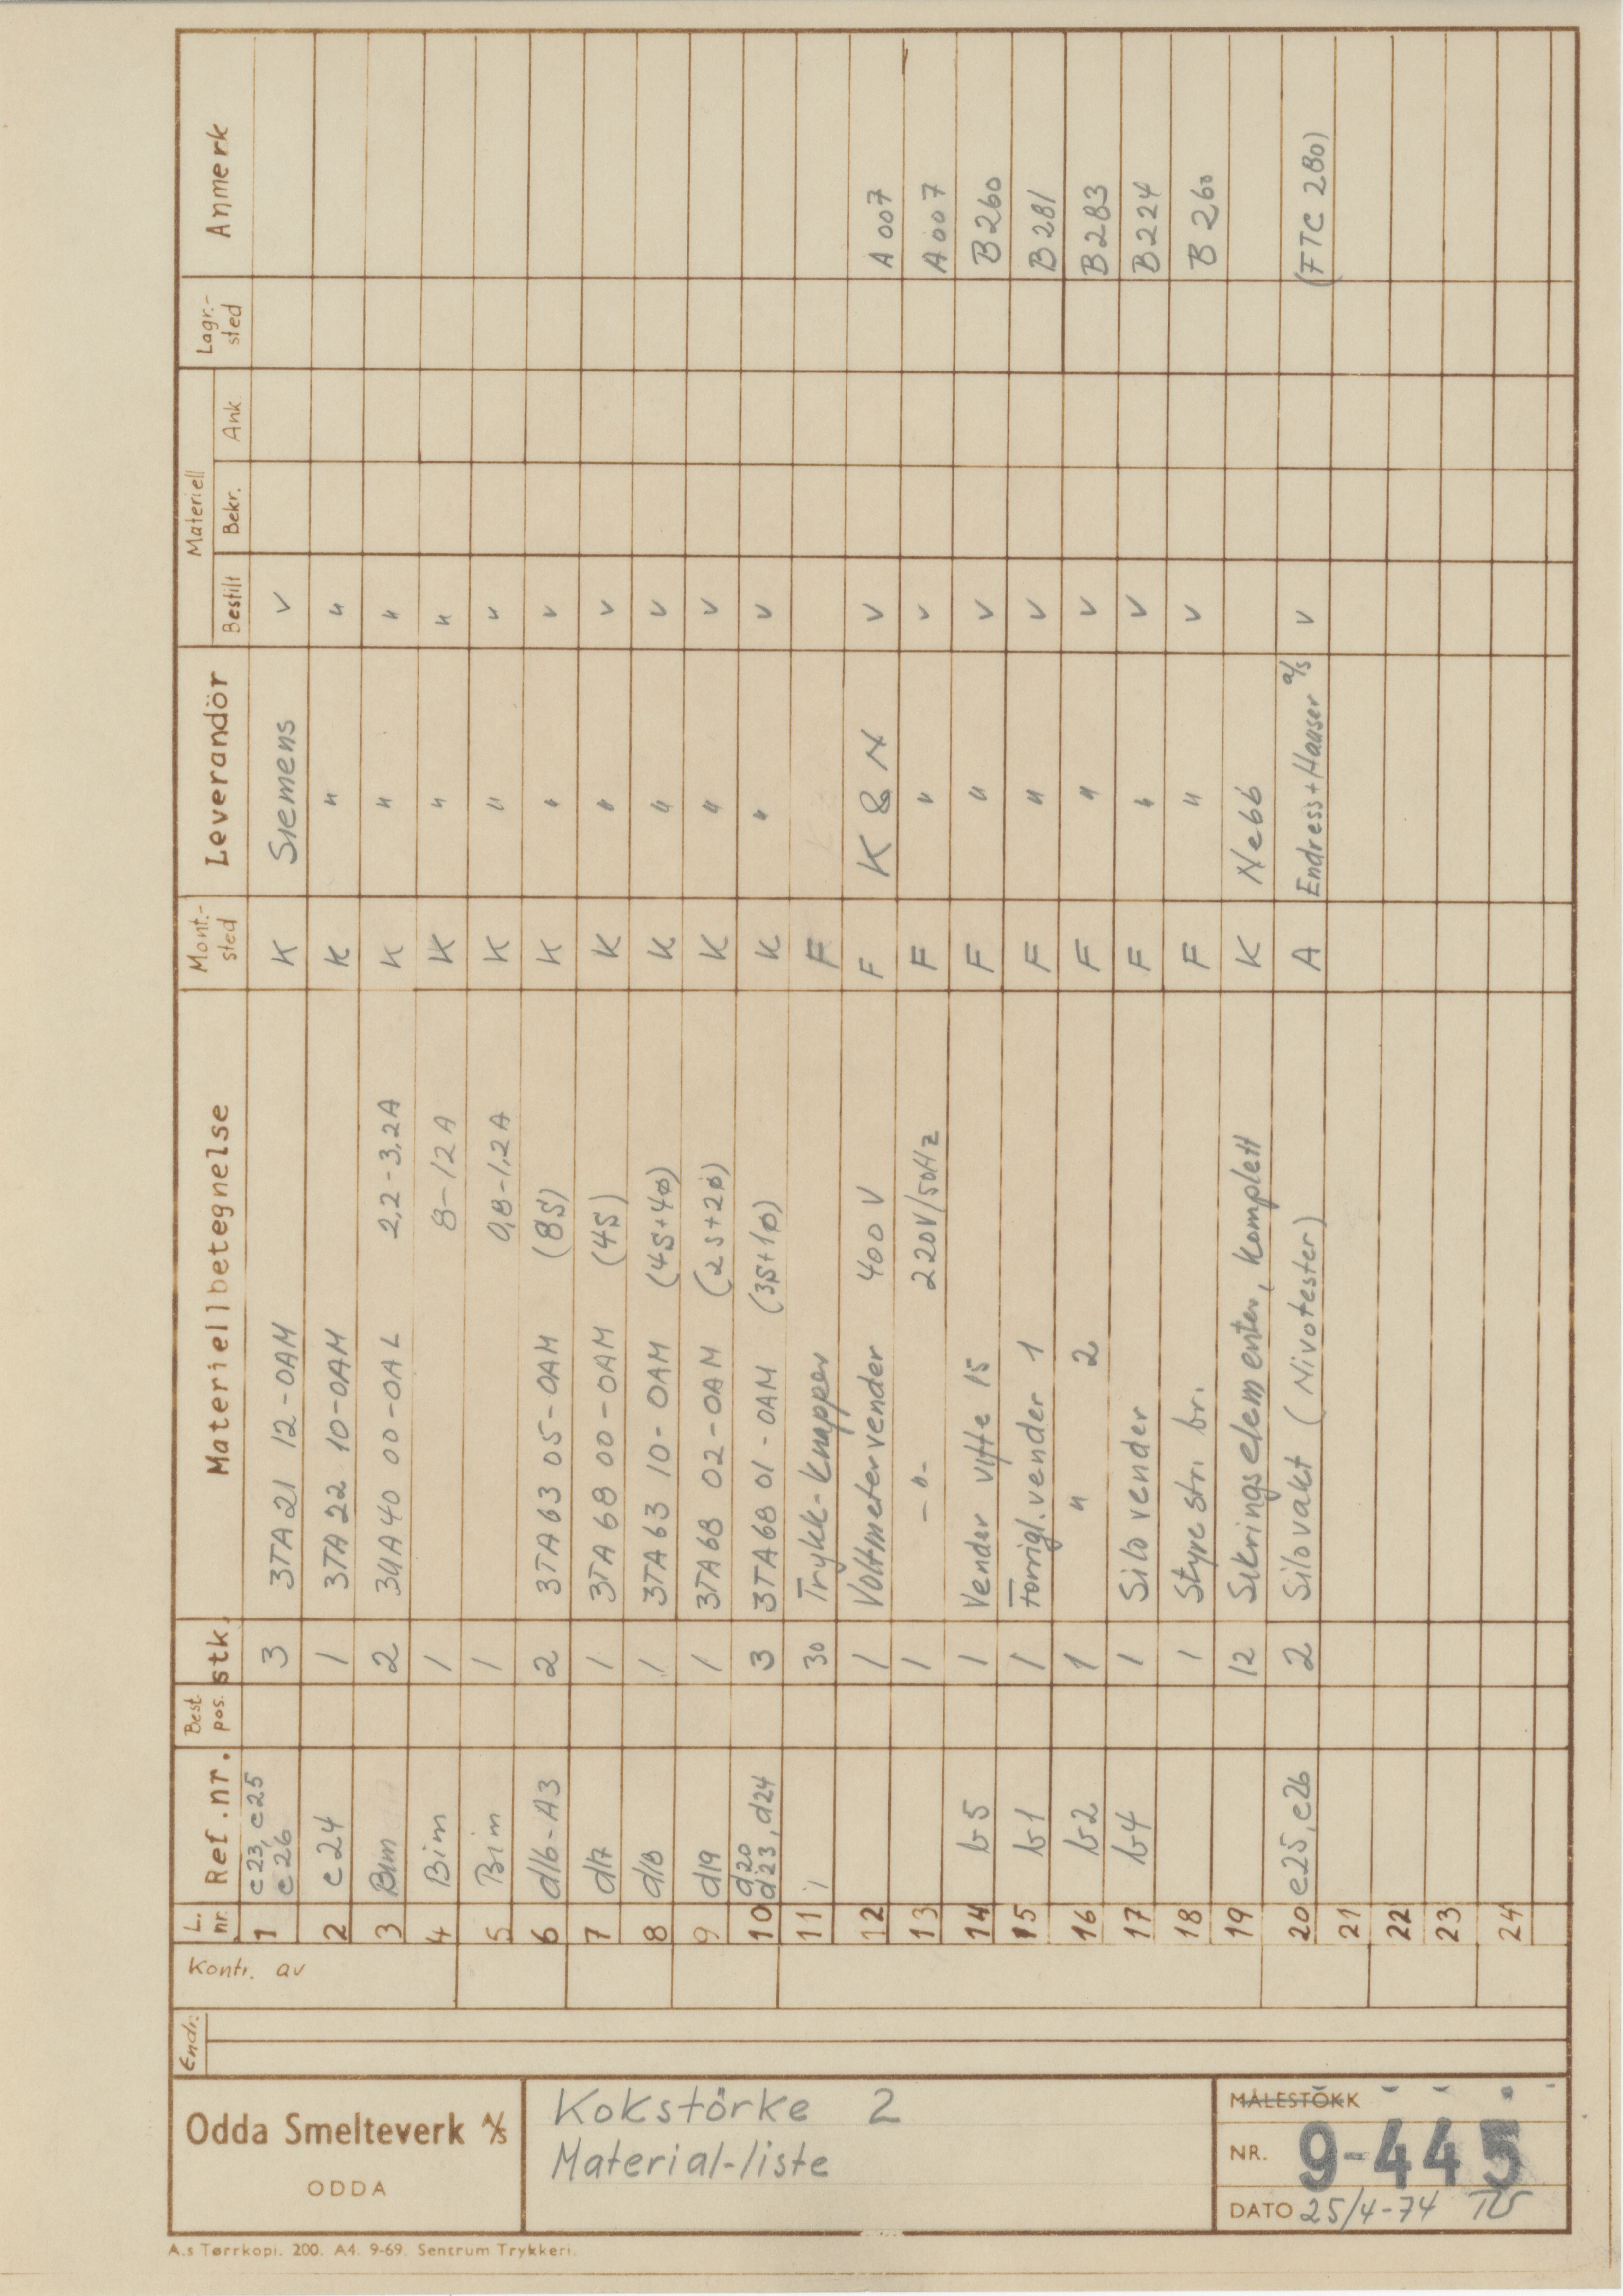 L. nr. Ref.nr. Best. pos. stk. Materiellbetegnelse Mont.-sted Leverandör Materiell Bestilt Bekr. Ank Lagr.-sted Anmerk
1 c23, c25 c26 3 3TA 21 12-0AM K Siemens v
2 c24 1 3TA 22 10-0AM K " "
3 Bim 2 3UA 40 00-0AL 2,2-3,2A K " "
4 Bim 1 8-12A K " "
5 Bim 1 0,8-1,2A K " "
6 d16-A3 2 3TA 63 05-0AM (8S) K " v
7 d17 1 3TA 68 00-0AM (4S) K " v
8 d18 1 3TA 63 10-0AM (4S+4ø) K " v
9 d19 1 3TA 68 02-0AM (2S+2ø) K " v
10 d20 d23, d24 3 3TA 68 01-0AM (3S+1ø) K " v
11 30 Trykk-knapper F
12 1 Voltmetervender 400V F K & N v A007
13 1 -"- 220V/50Hz F " v A007
14 b5 1 Vender vifte 15 F " v B260
15 b1 1 Forrigl.vender 1 F " v B281
16 b2 1 " 2 F " v B283
17 b4 1 Silo vender F " v B224
18 1 Styrestr. br. F " v B260
19 12 Sikringselementer, komplett K Nebb
20 e25, e26 2 Silovakt (Nivotester) A Endress+Hauser a/s v (FTC 280)
21
22
23
24
Kontr. av
Endr.
Odda Smelteverk A/S
ODDA
Kokstörke 2
Material-liste
MÅLESTOKK
NR. 9-445
DATO 25/4-74
A.s Tørrkopi. 200. A4. 9-69. Sentrum Trykkeri.